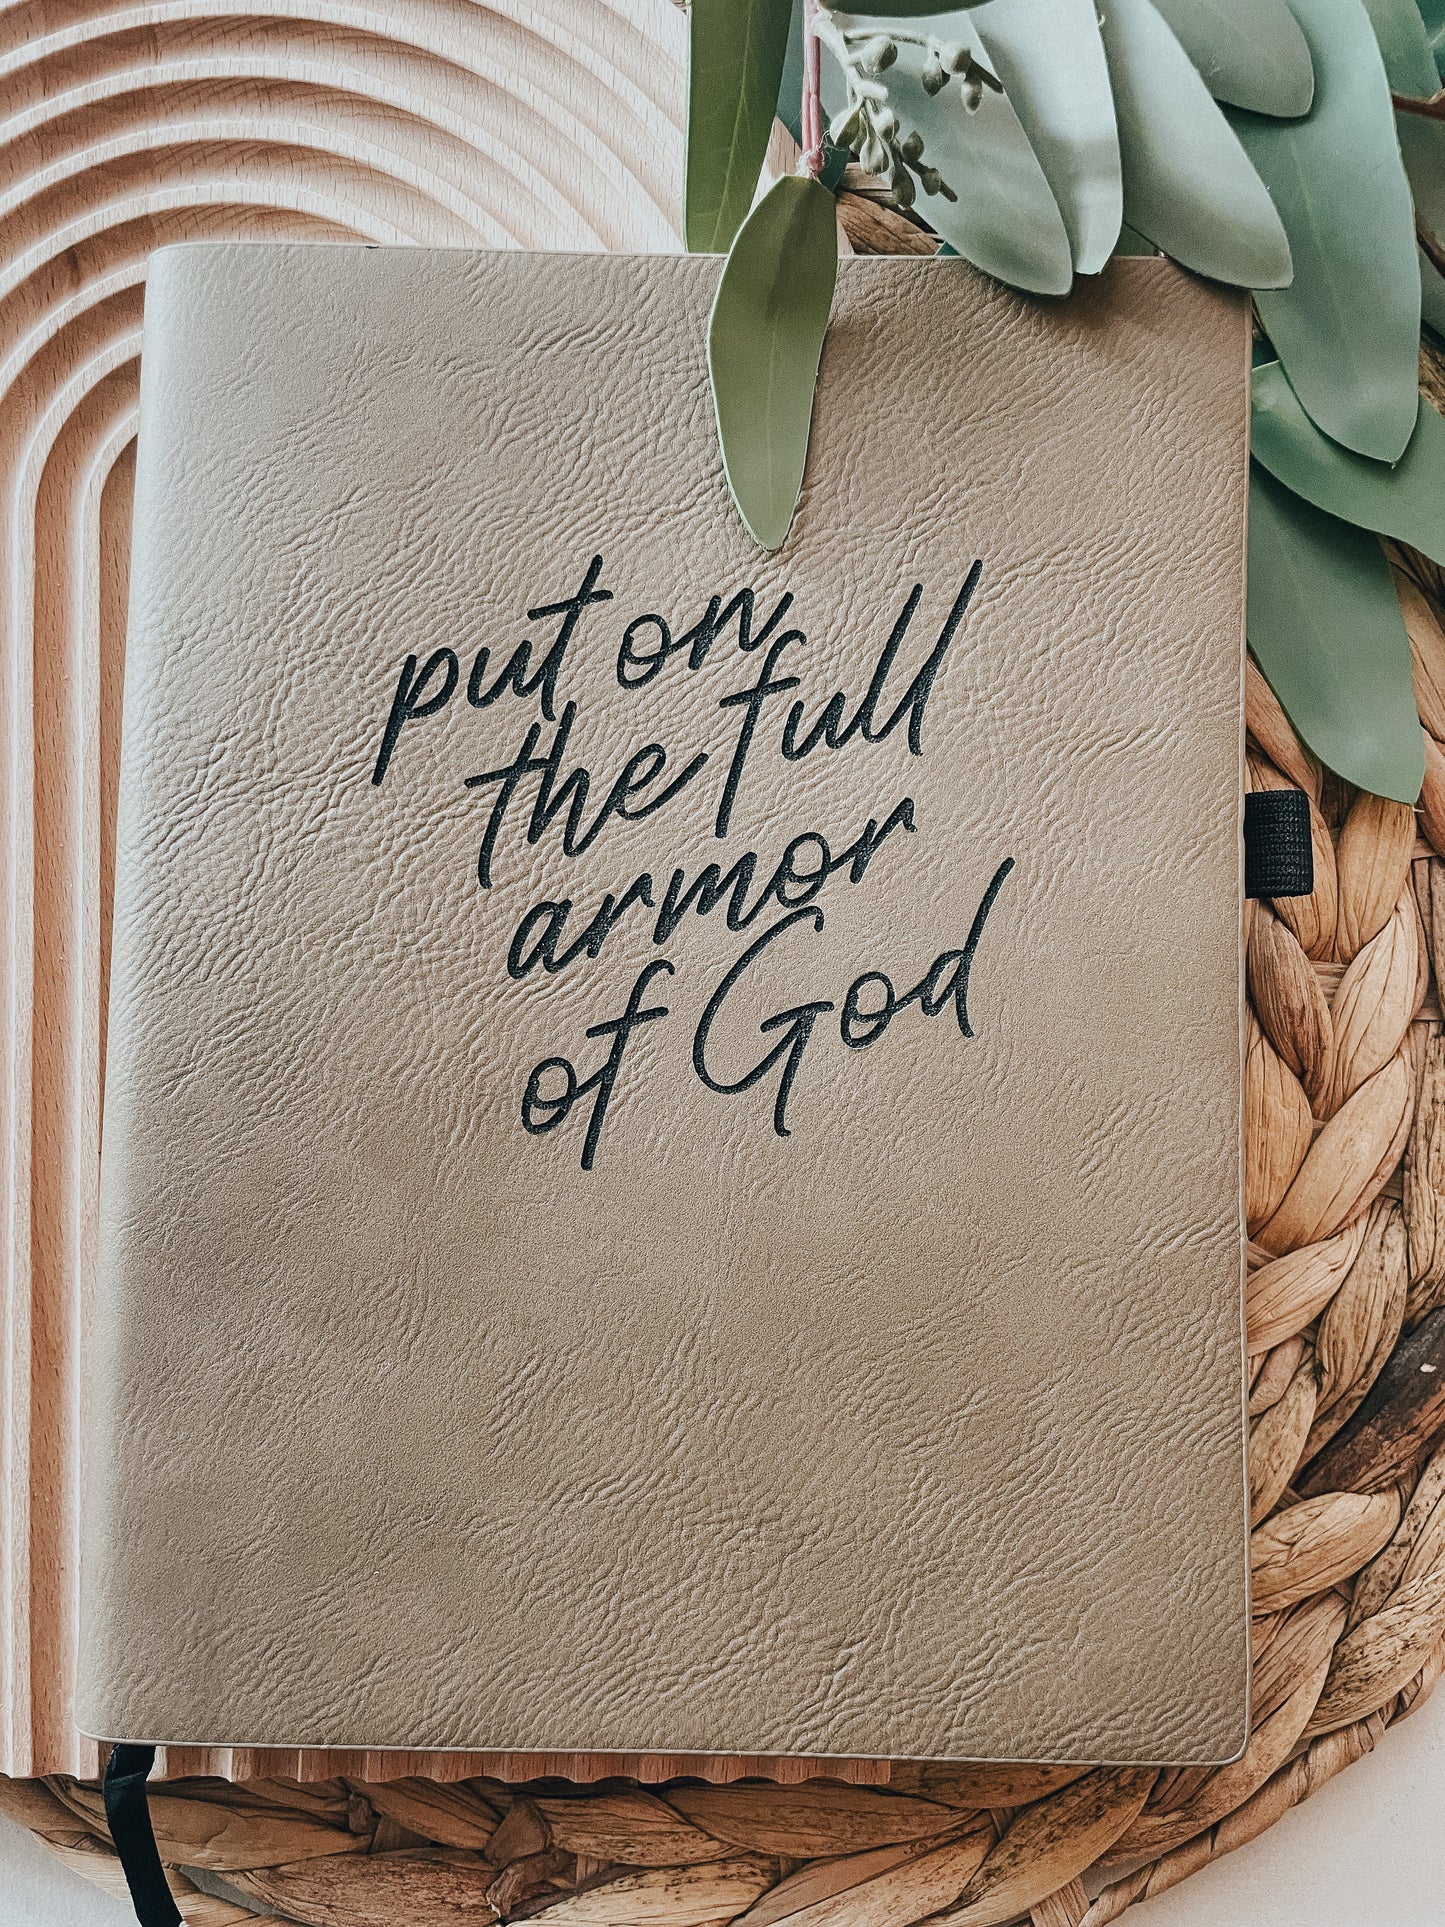 put on
the full
armor
of God